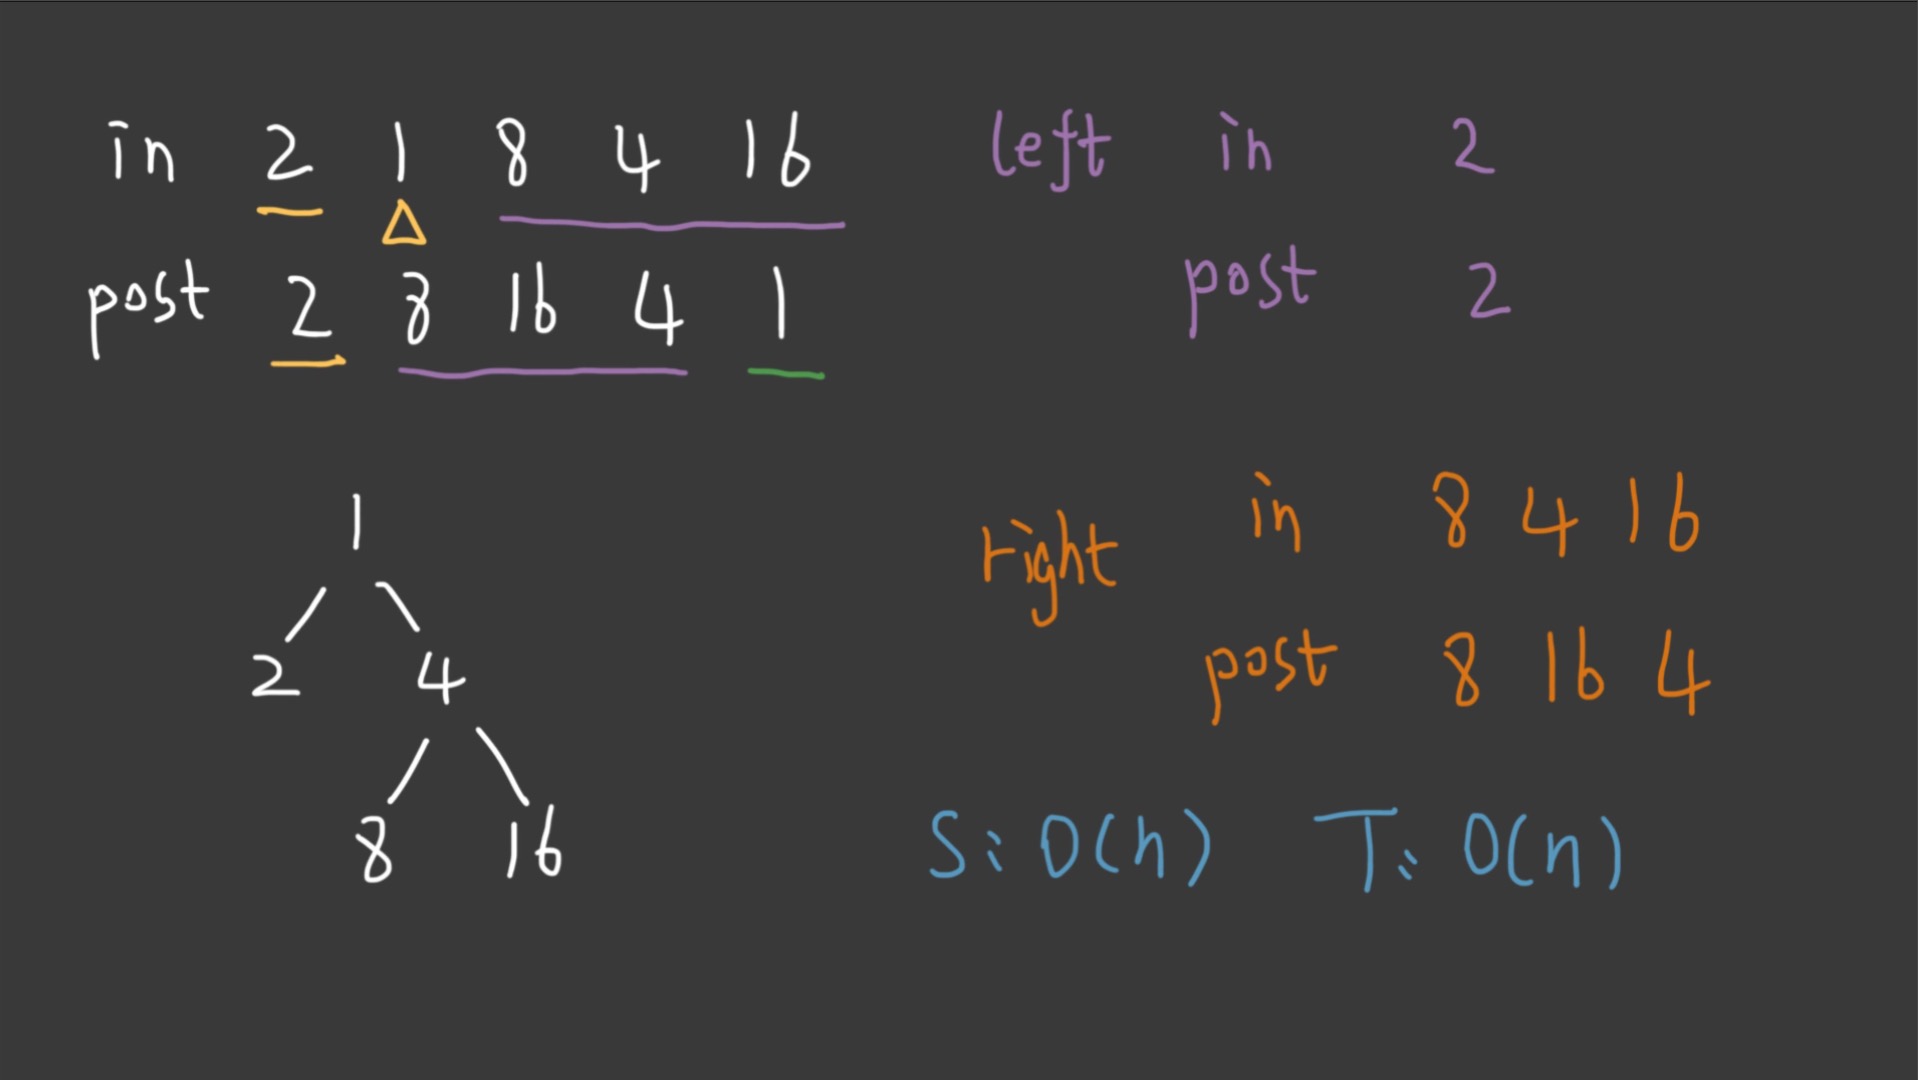 in 2 1 8 4 16
post 2 8 16 4 1
left in 2
post 2
1
2 4
8 16
right in 8 4 16
post 8 16 4
S: O(n) T: O(n)